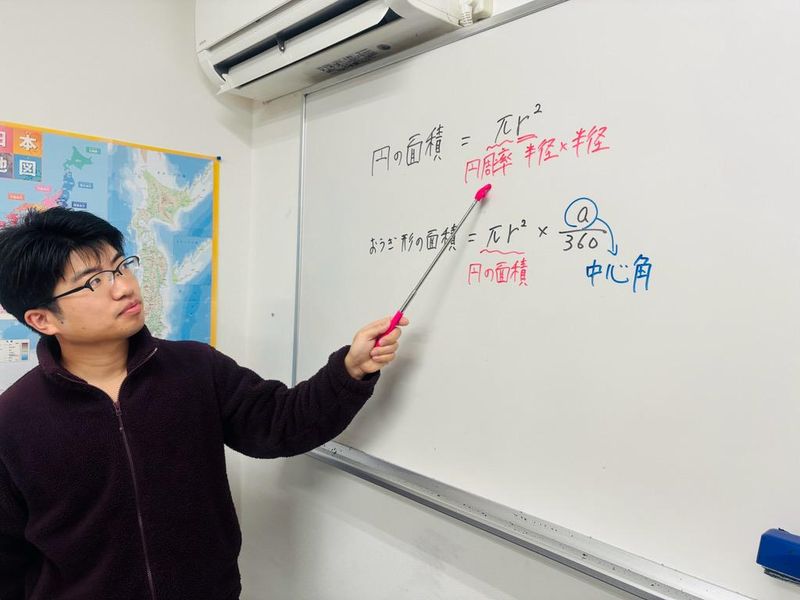 円の面積 = πr²
円周率 半径×半径
おうぎ形の面積 = πr² × a/360
円の面積 中心角
日本
地図